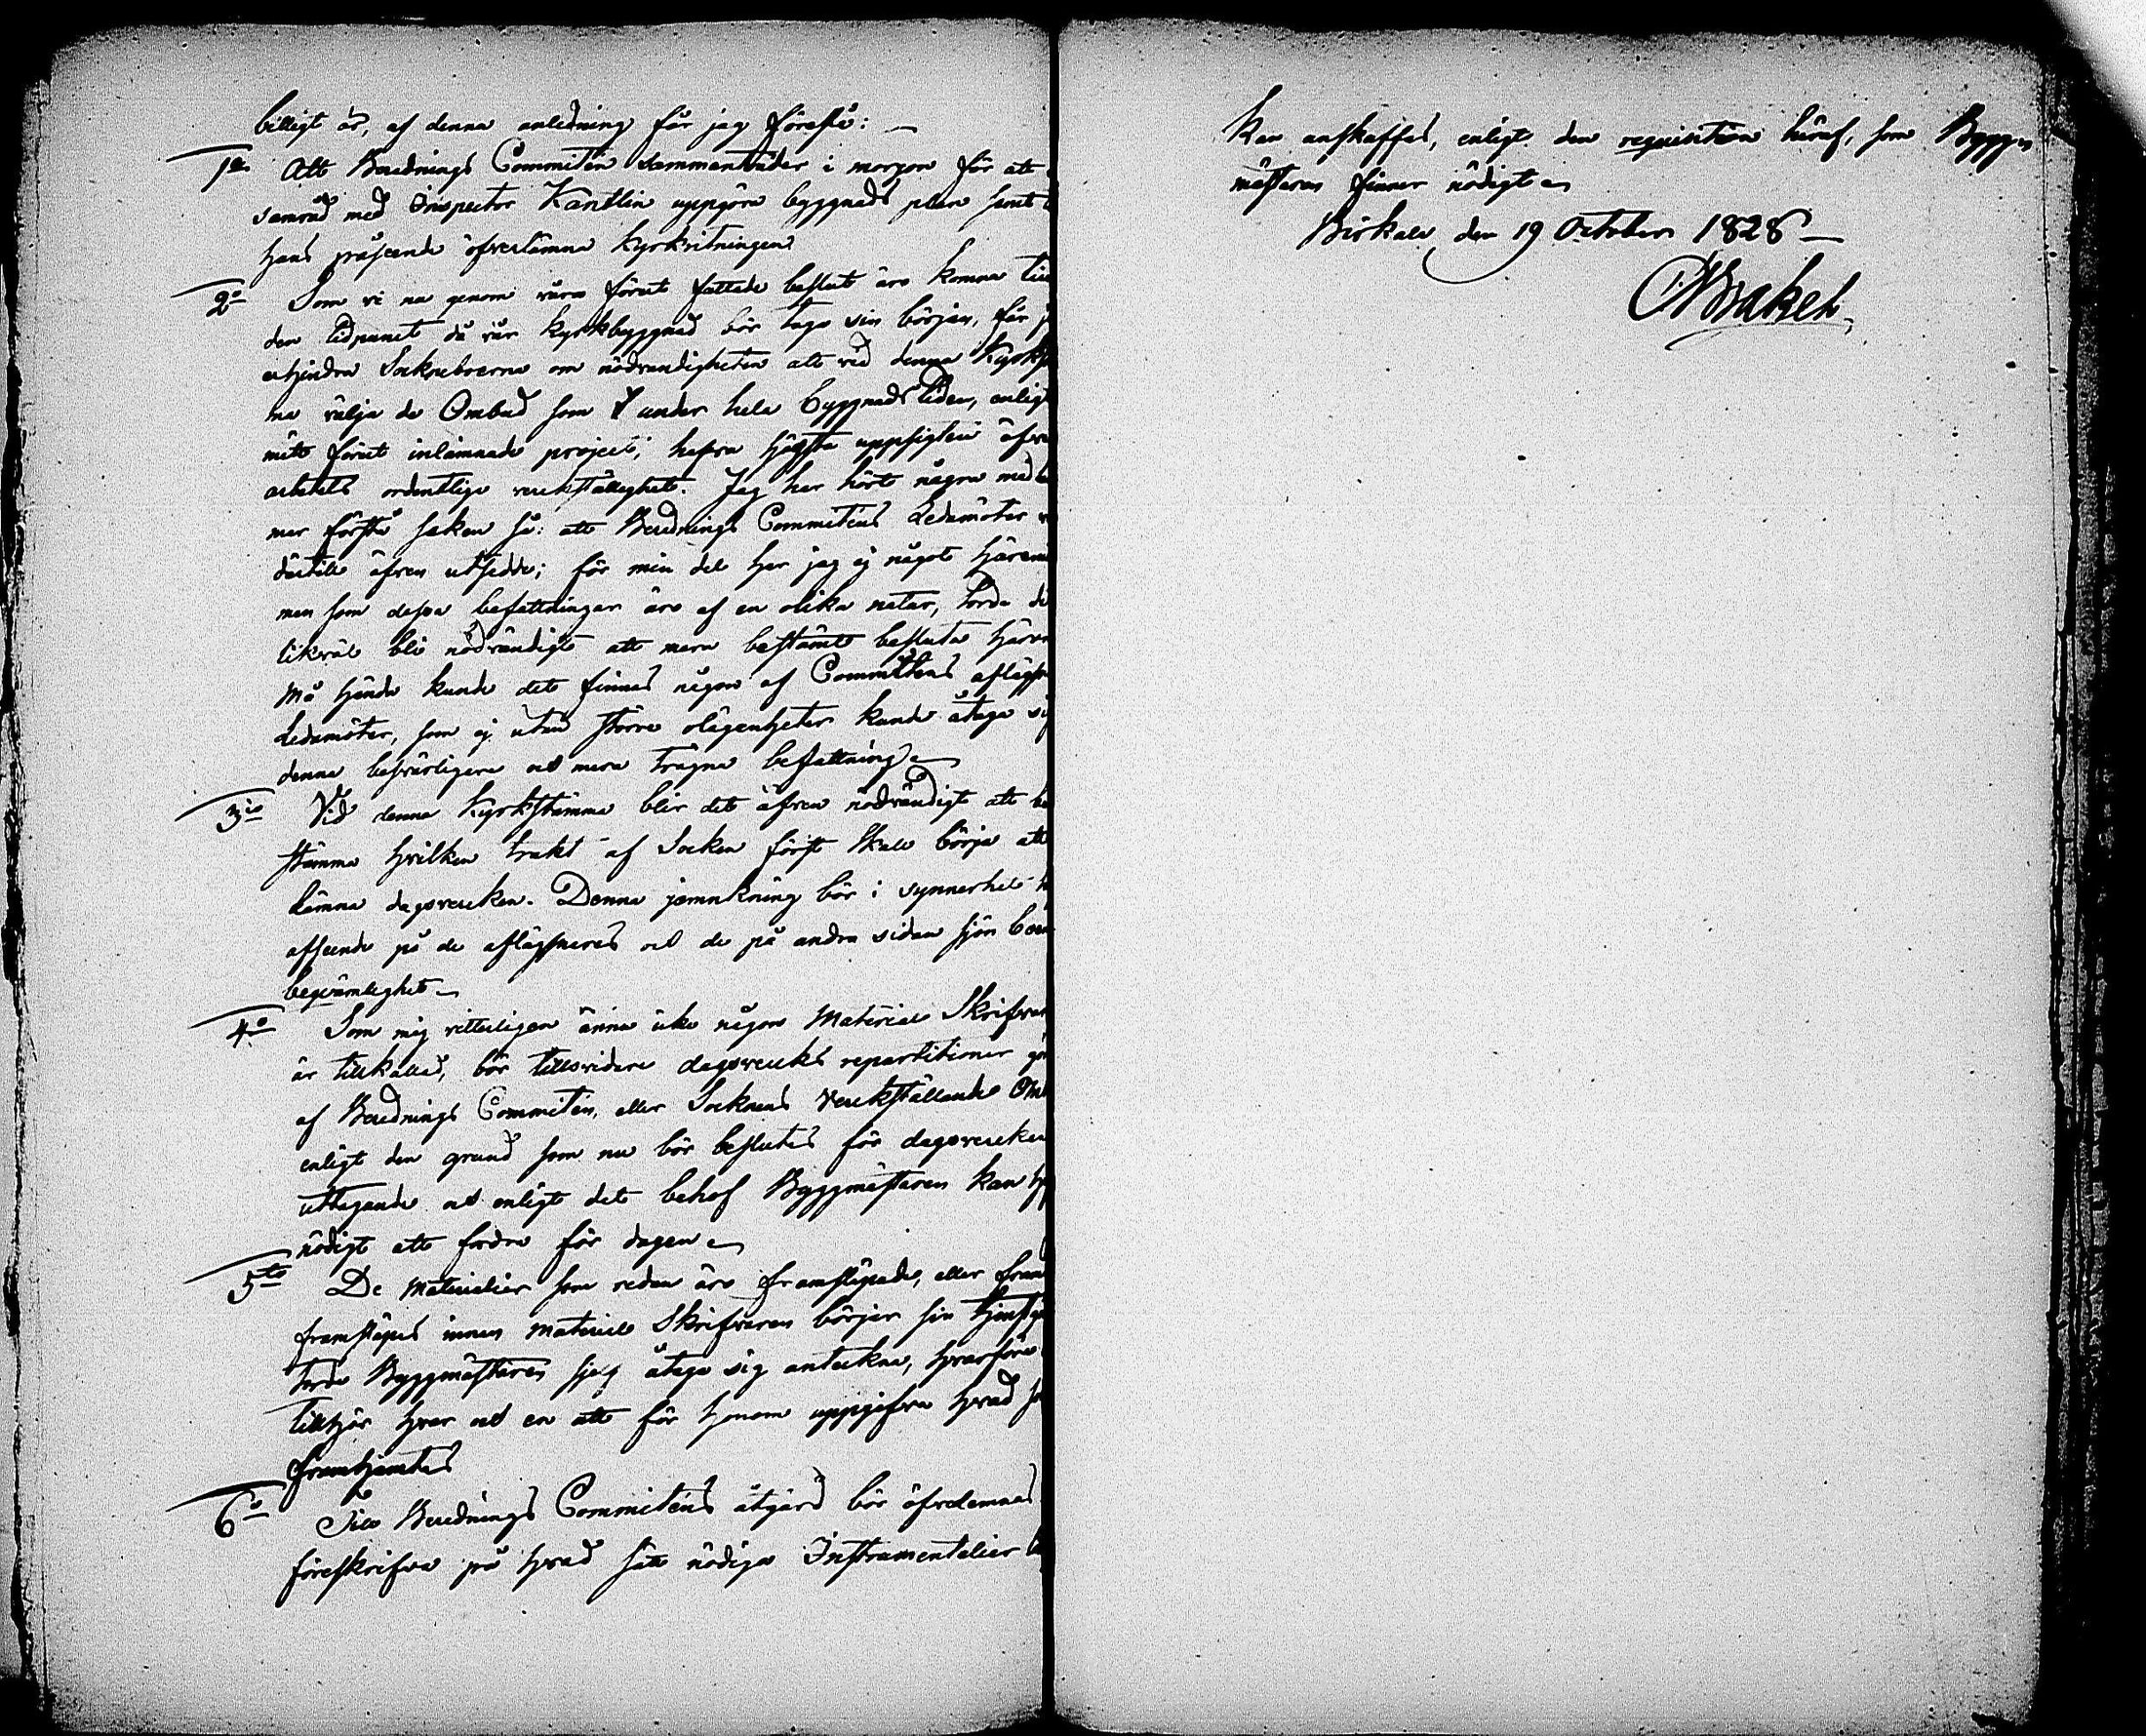 billigt är, af denna anledning får jag föreslå: —
1o Att Berednings Commitén sammanträder i morgon för att
samråd med Inspector Kantlin uppgöra byggnads plan samt
hans proscende öfverlämna kyrkritningen
2o Som vi nu genom våra förut fattade beslut äro komna till
den tidpunct då vår kyrkbyggnad bör taga sin början, får j
erhindra Sockneboerne om nödvändigheten att vid denna Kyrkst
ma välja de Ombud som under hela byggnads tiden, enligt
mitt förut inlämnade project, hafva högsta uppsigten öfve
arbetets ordentliga verkställighet. Jag har hört några med
mer förstå saken så: att Berednings Committéns Ledamöter
därtill äfven utsedde; för min del har jag ej något häremo
men som dessa befattningar äro af en olika natur, torde de
likväl bli nödvändigt att mera bestämt besluta härom
Må hända kunde det finnas någon af Committéns aflägsn
Ledamöter, som ej utan större olägenheter kunde åtaga sig
denna besvärligare och mera trägna befattning —
3io Vid denna Kyrkstämma blir det äfven nödvändigt att be
stämma hvilken trakt af Socken först skall börja att
lämna dagsverken. Denna jämnkning bör i synnerhet h
afseende på de aflägsnares och de på andra sidan sjön boen
beqvämlighet —
4o Som mig vitterligen ännu icke någon Material Skrifvar
är tillkallad, bör tillsvidare dagsverks repartitioner gö
af Berednings Commitén, eller Socknens Verkställande Omb
enligt den grund som nu bör beslutas för dagsverken
uttagande och enligt det behof Byggmästaren kan
nödigt att fordra för dagen —
5to De Materialier som redan äro framsläpade, eller fram
framsläpas innan Material Skrifvaren börjar sin tjenstgö
torde Byggmästaren sjelf åtaga sig anteckna, hvarföre
tillhör hvar och en att för honom uppgifva hvad so
framhämtas
6o Till Berednings Committéns åtgärd bör öfverlemnas
föreskrifva på hvad sätt nödiga Instrumentalier
Kan anskaffas, enligt den requisition häraf, som Bygg
mästaren finner nödigt —
Birkala den 19 October 1828 —